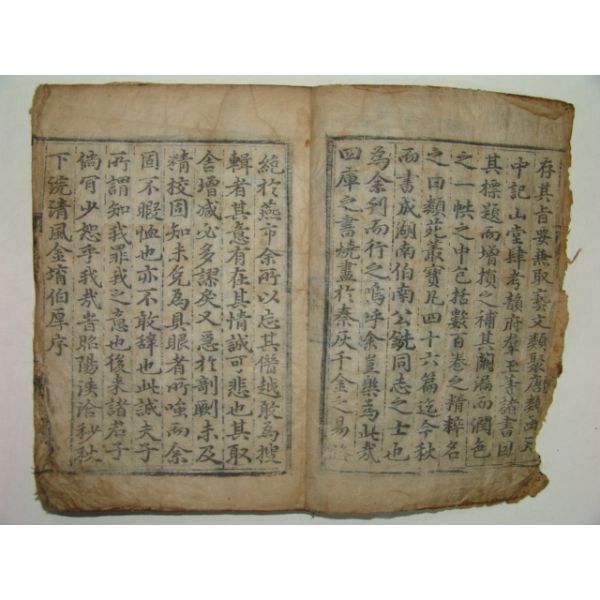 存其旨要兼取藝文類聚唐類函天
中記山堂肆考韻府群玉等諸書因
其標題而增損之補其闕漏而潤色
之一帙之中包括數百卷之精粹名
之曰類苑叢寶凡四十六篇迄今秋
而書成湖南伯南公銑同志之士也
為余刊而行之嗚呼余豈樂為此哉
四庫之書燒盡於秦灰千金之易
絶於燕市余所以忘其僭越敢為搜
輯者其意有在其情誠可悲也其取
舍增减必多謬戾又急於剞劂未及
精校固知未免為具眼者所嗤而余
固不暇恤也亦不敢辭也此誠夫子
所謂知我罪我之意也後来諸君子
倘冐少恕乎我哉峕昭陽洽秒秋
下浣清風金堉伯厚序